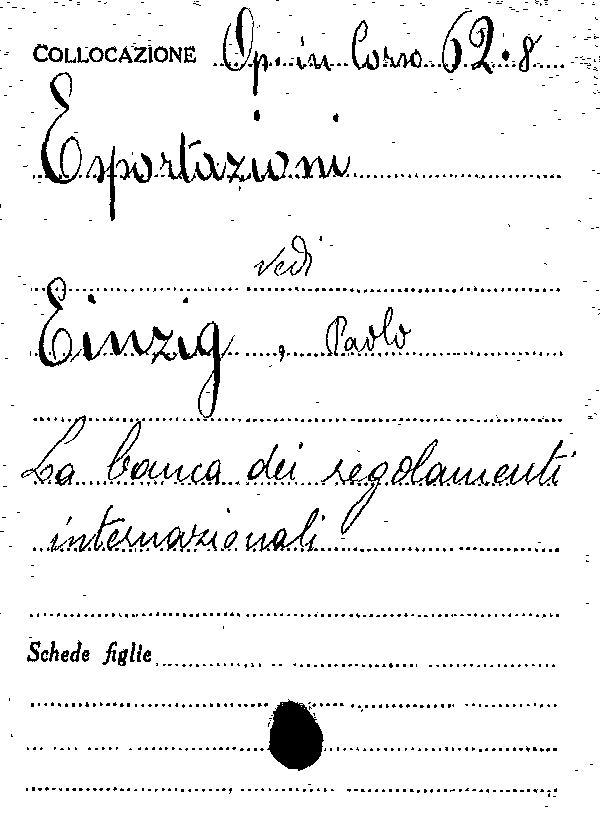 COLLOCAZIONE Op. in Corso 62.8
Esportazioni
vedi
Einzig, Paolo
La banca dei regolamenti
internazionali
Schede figlie